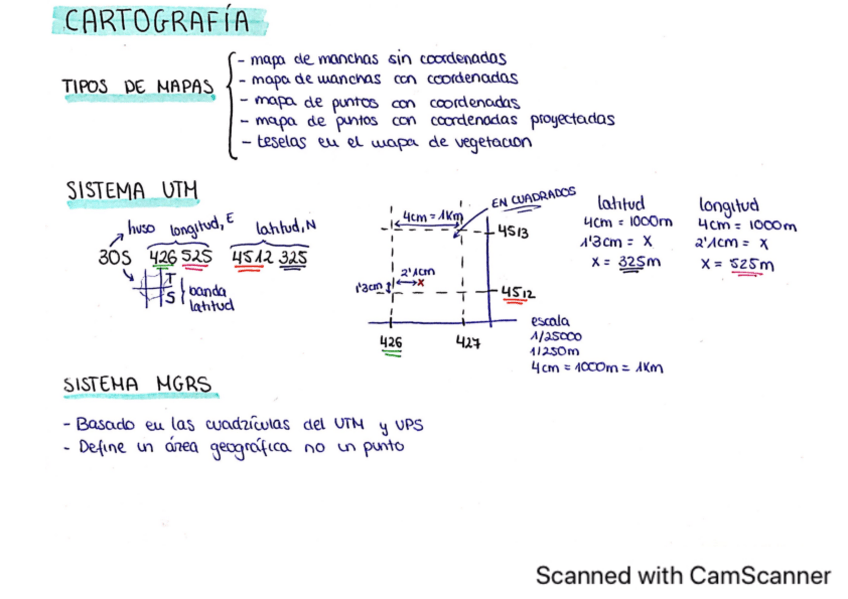 CARTOGRAFÍA
TIPOS DE MAPAS
- mapa de manchas sin coordenadas
- mapa de manchas con coordenadas
- mapa de puntos con coordenadas
- mapa de puntos con coordenadas proyectadas
- teselas en el mapa de vegetacion
SISTEMA UTM
huso longitud, E latitud, N
30S 426 525 4512 325
T
S
banda
latitud
EN CUADRADOS
4cm = 1Km
4513
2'1cm
1'3cm
x
4512
426 427
escala
1/25000
1/250m
4cm = 1000m = 1Km
latitud
4cm = 1000m
1'3cm = x
x = 325m
longitud
4cm = 1000m
2'1cm = x
x = 525m
SISTEMA MGRS
- Basado en las cuadrículas del UTM y UPS
- Define un área geográfica no un punto
Scanned with CamScanner